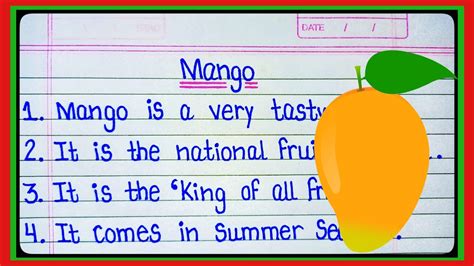 DATE / /
Mango
1. Mango is a very tasty
2. It is the national
3. It is the 'King of all
4. It comes in Summer